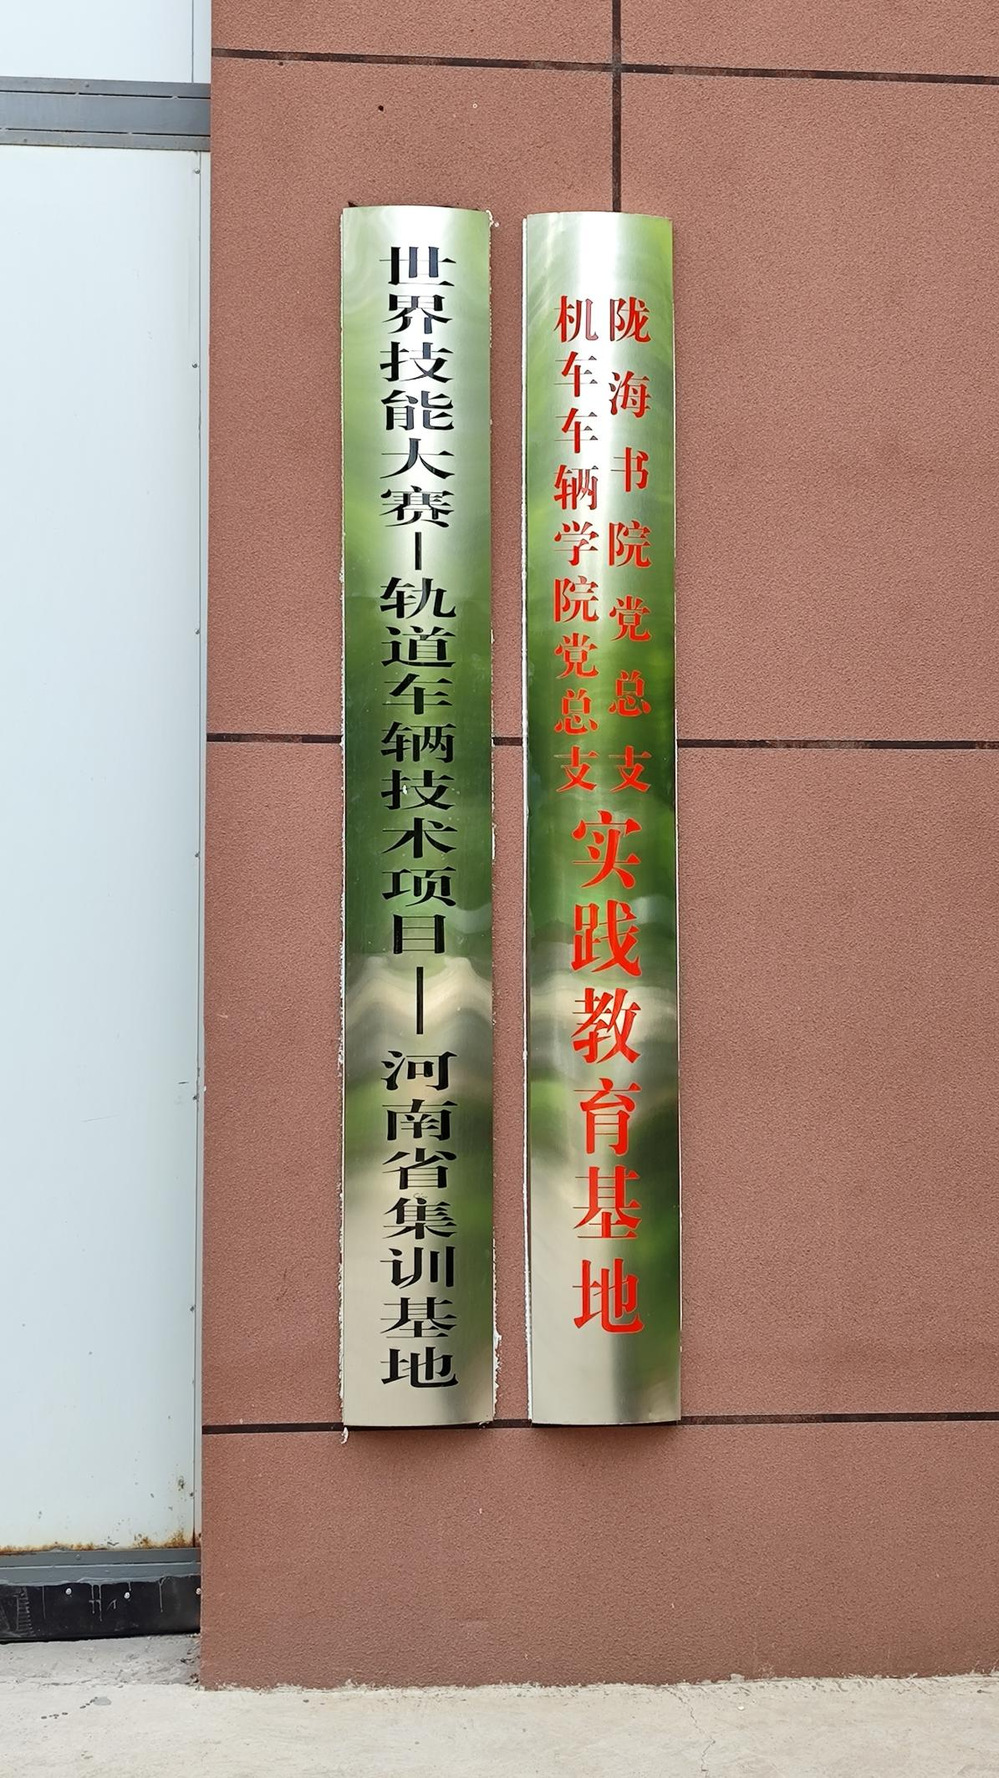 世界技能大赛—轨道车辆技术项目——河南省集训基地
陇海书院党总支
机车车辆学院党总支
实践教育基地